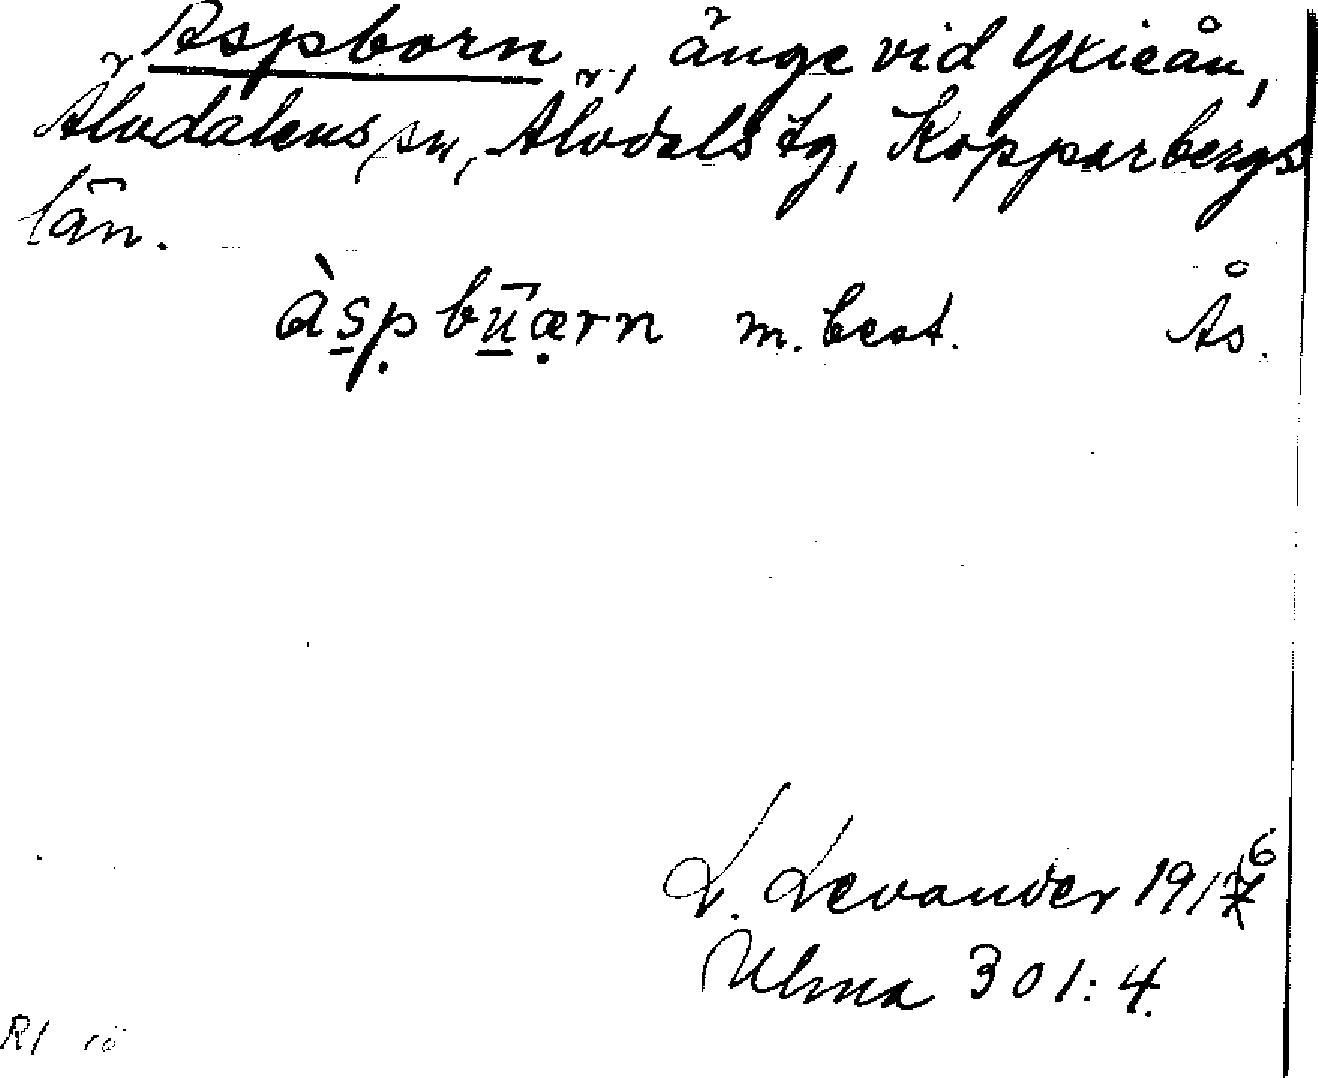 Aspborn, änge vid Yxieån,
Älvdalens sn, Älvdals tg, Kopparbergs
län.
àspbūærn m. best. Ås.
L. Levander 1916
Ulma 301:4.
R1